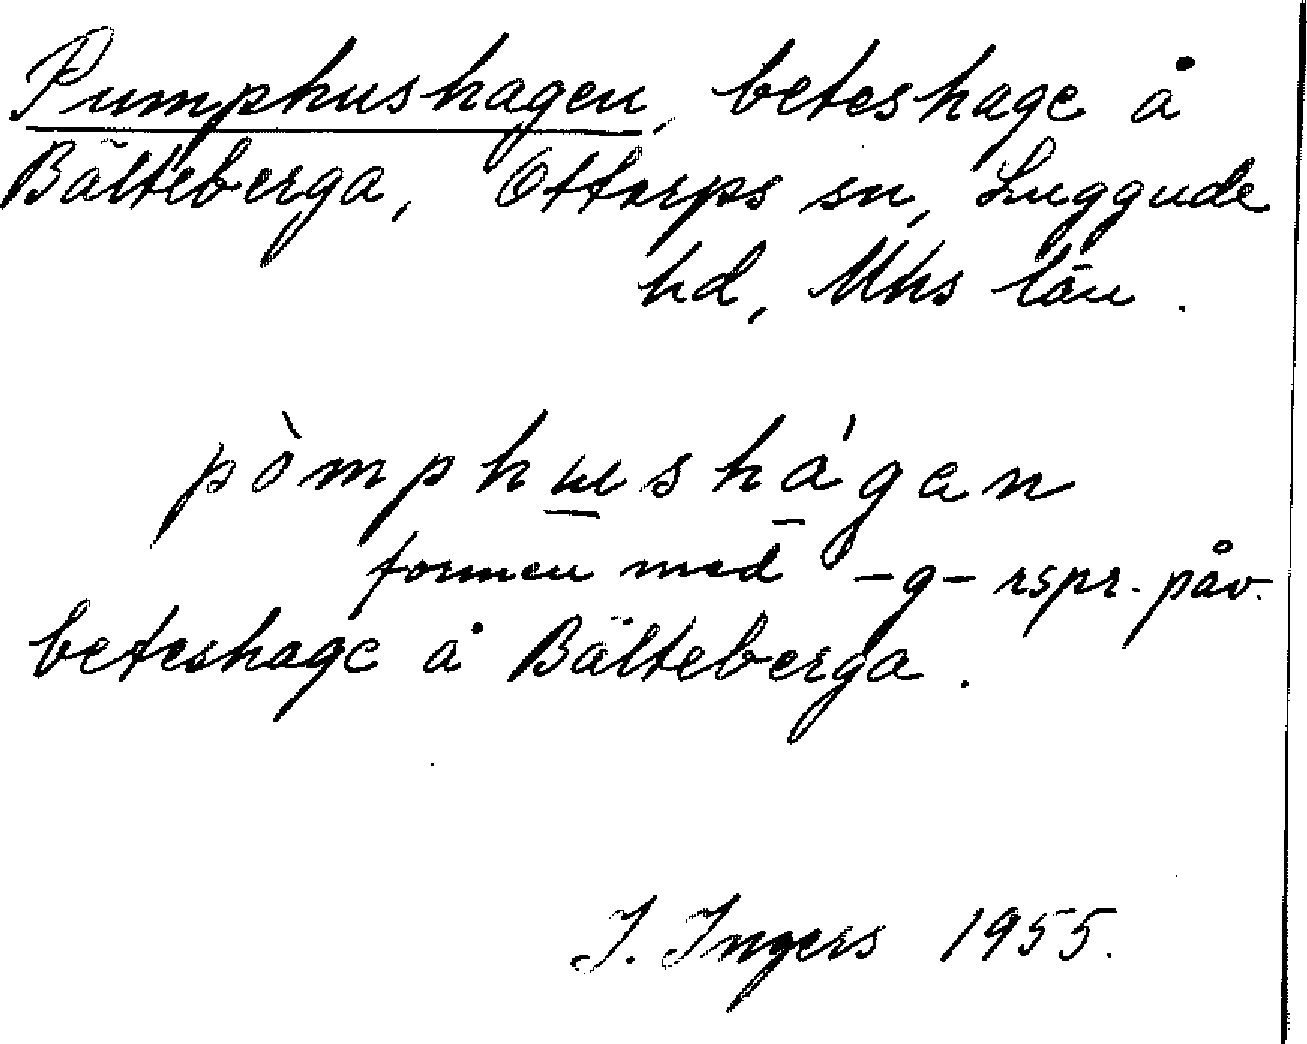 Pumphushagen, beteshage å
Bälteberga, Ottarps sn, Luggude
hd, Mhs län.
pòmphushágen
formen med -g- rspr. påv.
beteshage å Bälteberga.
I. Ingers 1955.